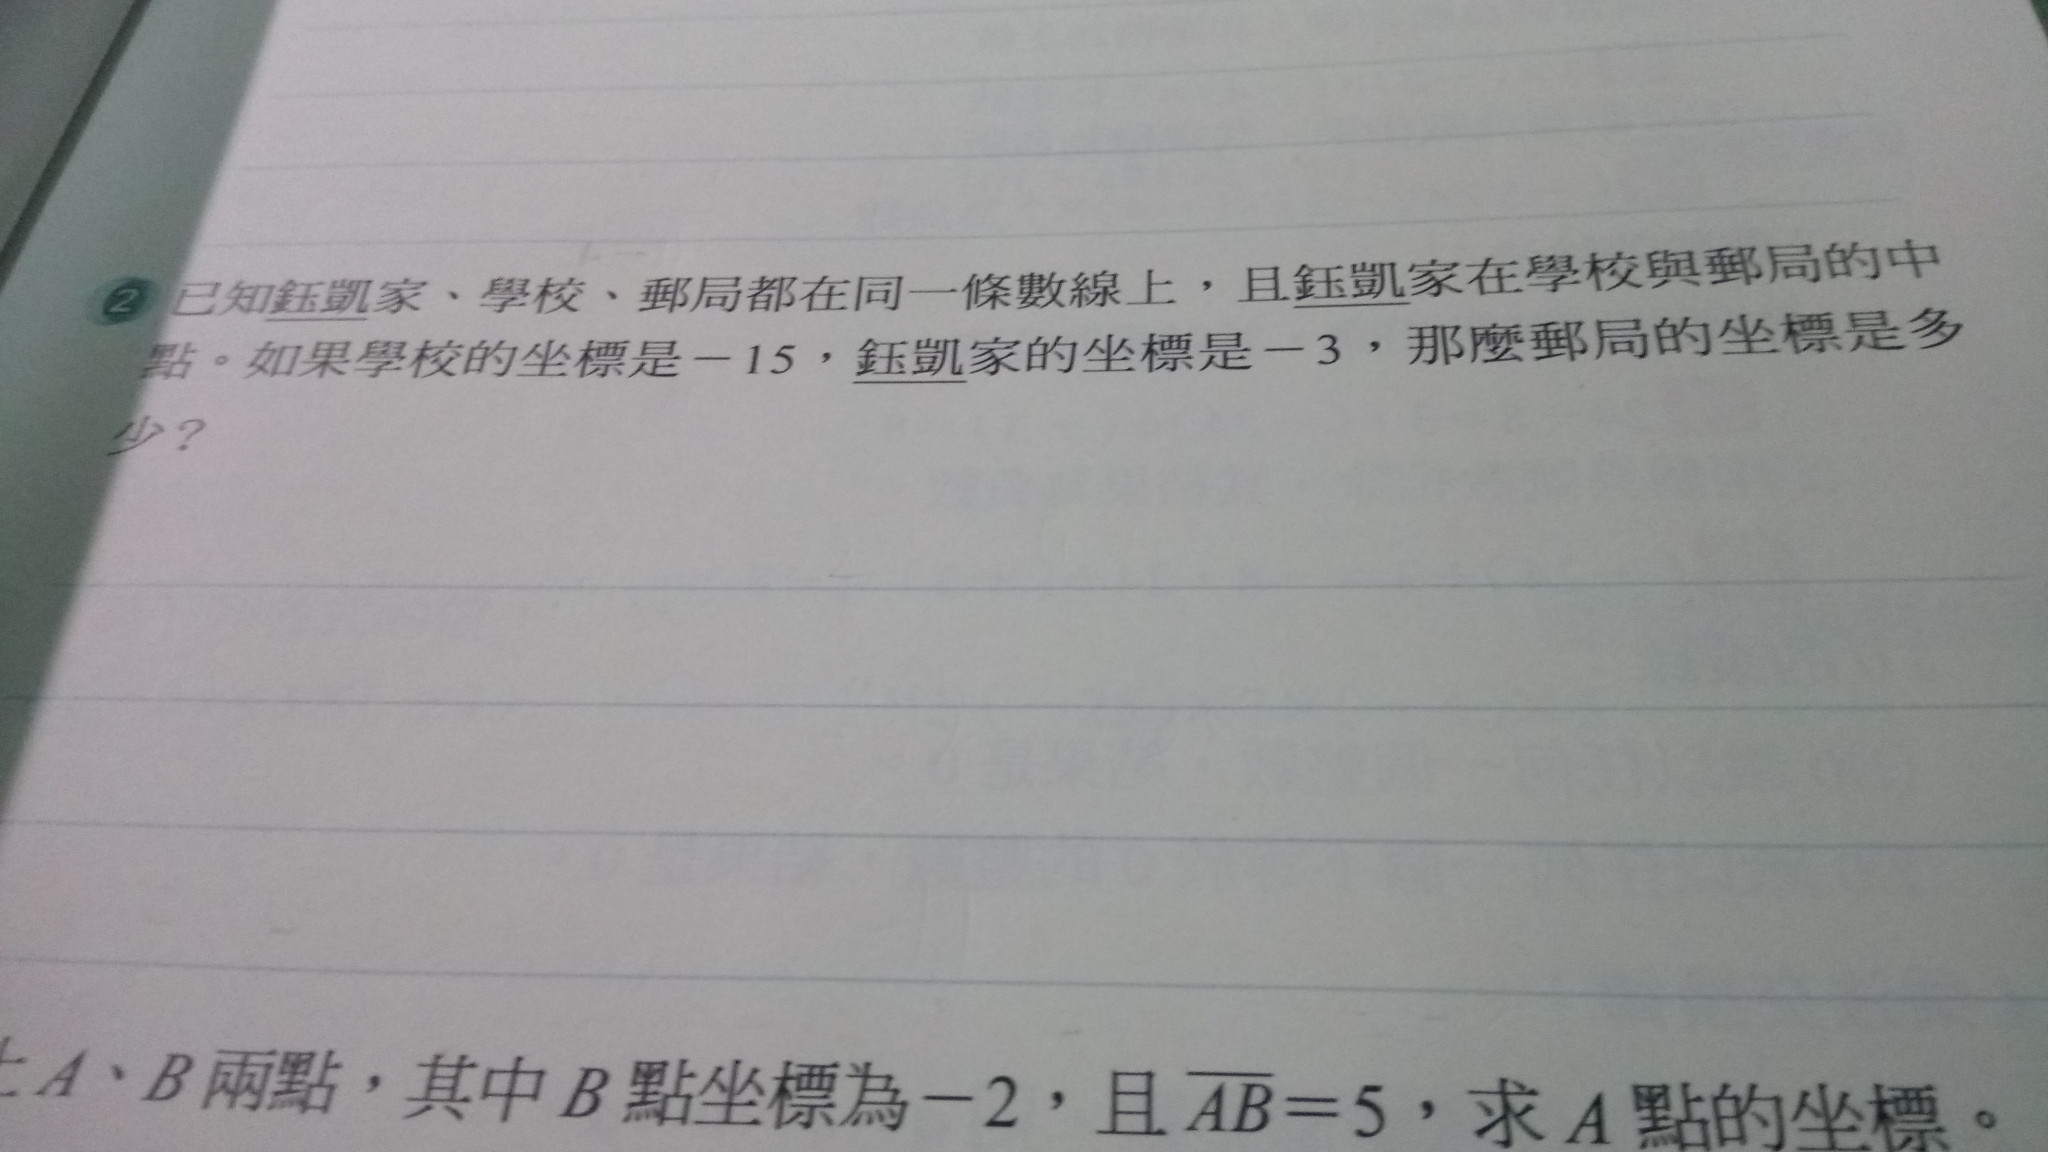 2 已知鈺凱家、學校、郵局都在同一條數線上，且鈺凱家在學校與郵局的中
點。如果學校的坐標是－15，鈺凱家的坐標是－3，那麼郵局的坐標是多
少？
上A、B兩點，其中B點坐標為－2，且AB=5，求A點的坐標。